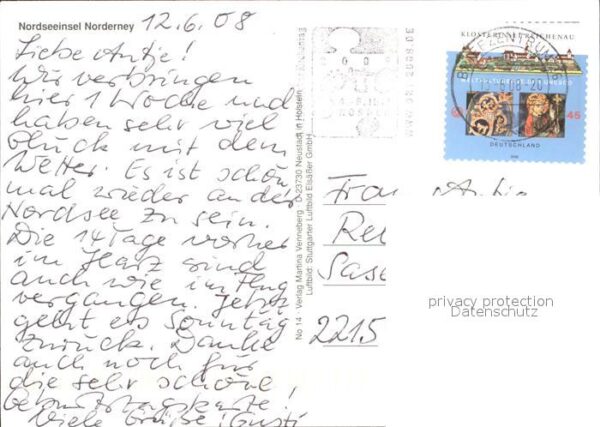 Nordseeinsel Norderney
12.6.08
Liebe Antje!
Wir verbringen
hier 1 Woche und
haben sehr viel
Glück mit dem
Wetter. Es ist schön
mal wieder an der
Nordsee zu sein.
Die 14 Tage vorher
im Harz sind
auch wie im Flug
vergangen. Jetzt
geht es Sonntag
zurück. Danke
auch noch für
die sehr schöne
Geburtstagskarte!
Viele Grüße! Gusti
No 14 · Verlag Martina Venneberg · D-23730 Neustadt in Holstein
Luftbild: Stuttgarter Luftbild Elsäßer GmbH
BRIEFZENTRUM
KLOSTERINSEL REICHENAU
WELTKULTURERBE DER UNESCO
45
DEUTSCHLAND
2008
Frau
2215
privacy protection
Datenschutz